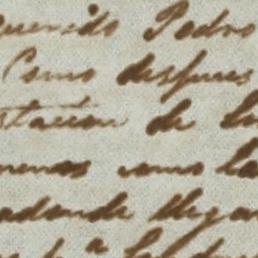 Querido Pedro
Como despues
estacion de
menos como la
adonde llegar
a